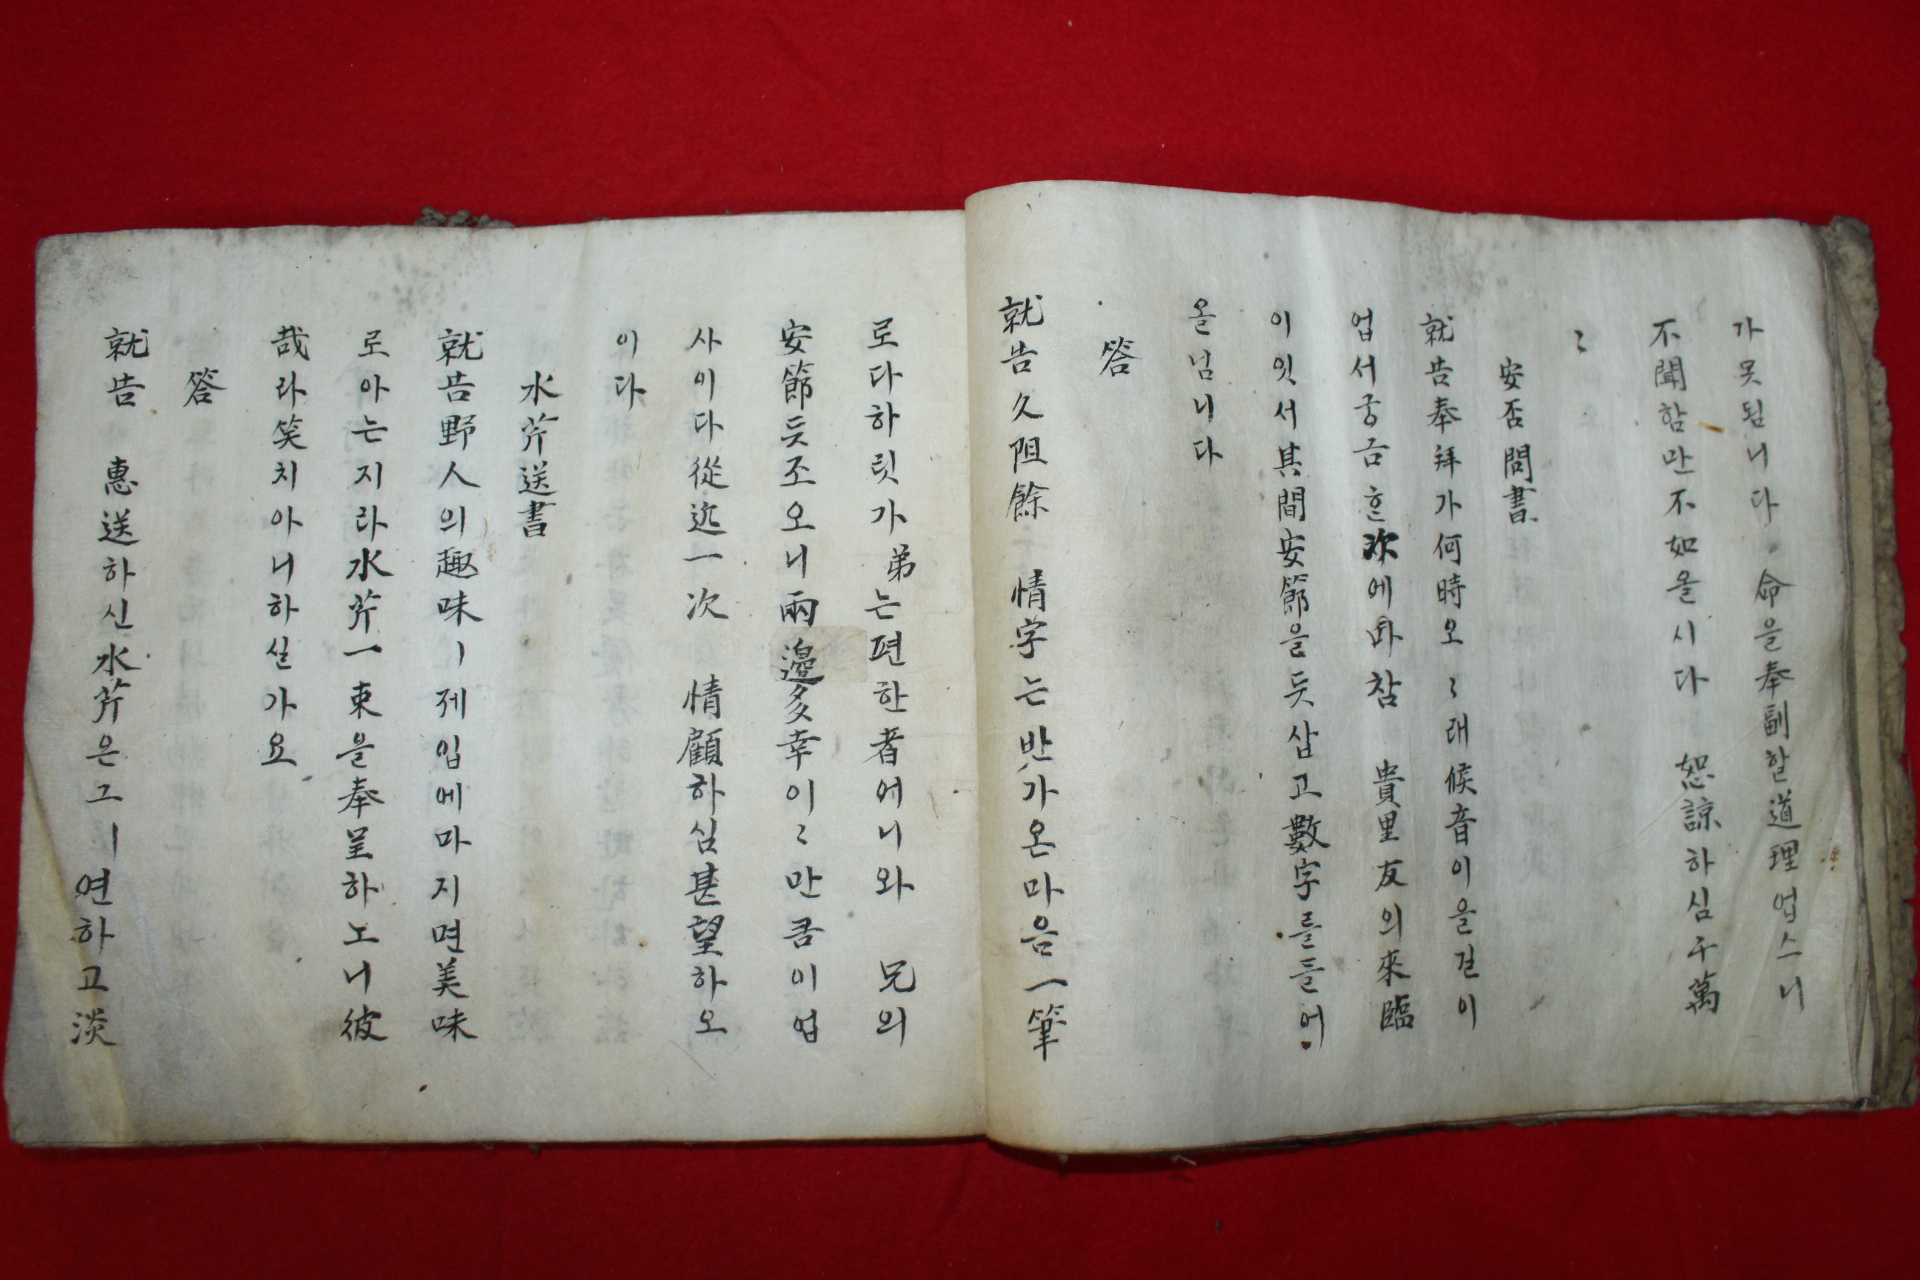 가못됨니다 命을奉副할道理업스니
不聞함만不如올시다 恕諒하심千萬
〻
安否問書
就告奉拜가何時오〻래候音이을련이
업서궁금흔次에마참 貴里友의來臨
이잇서其間安節을듯삽고數字를들어
올님니다
答
就告久阻餘 情字는반가온마음一筆
로다하릿가弟는편한者어니와 兄의
安節듯조오니兩邊多幸이〻만큼이업
사이다從近一次 情顧하심甚望하오
이다
水芹送書
就告野人의趣味ㅣ제입에마지면美味
로아는지라水芹一束을奉呈하노니彼
哉라笑치아니하실가요
答
就告 惠送하신水芹은그ㅣ연하고淡